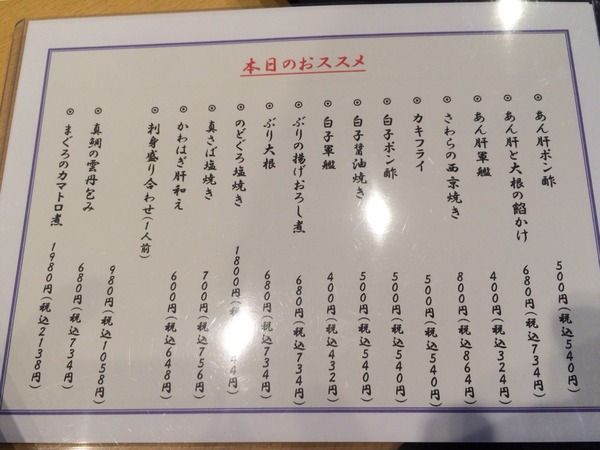 本日のおススメ
◎ あん肝ポン酢 500円(税込540円)
◎ あん肝と大根の餡かけ 680円(税込734円)
◎ あん肝軍艦 400円(税込324円)
◎ さわらの西京焼き 800円(税込864円)
◎ カキフライ 500円(税込540円)
◎ 白子ポン酢 500円(税込540円)
◎ 白子醤油焼き 500円(税込540円)
◎ 白子軍艦 400円(税込432円)
◎ ぶりの揚げおろし煮 680円(税込734円)
◎ ぶり大根 680円(税込734円)
◎ のどぐろ塩焼き 1800円(税込 44円)
◎ 真さば塩焼き 700円(税込756円)
◎ かわはぎ肝和え 600円(税込648円)
◎ 刺身盛り合わせ(1人前) 980円(税込1058円)
◎ 真鯛の雲丹包み 680円(税込734円)
◎ まぐろのカマトロ煮 1980円(税込2138円)